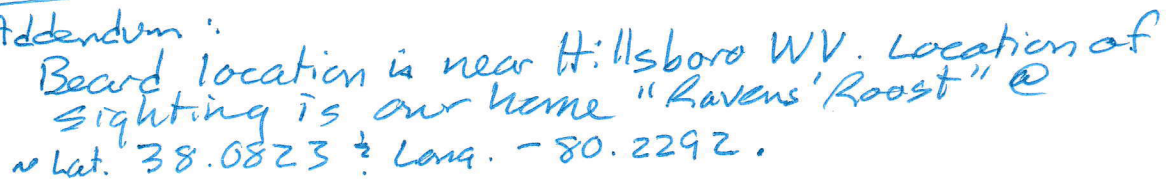 Addendum:
Beard location is near Hillsboro WV. Location of
sighting is our home "Ravens' Roost" @
~ Lat. 38.0823 & Long. -80.2292.